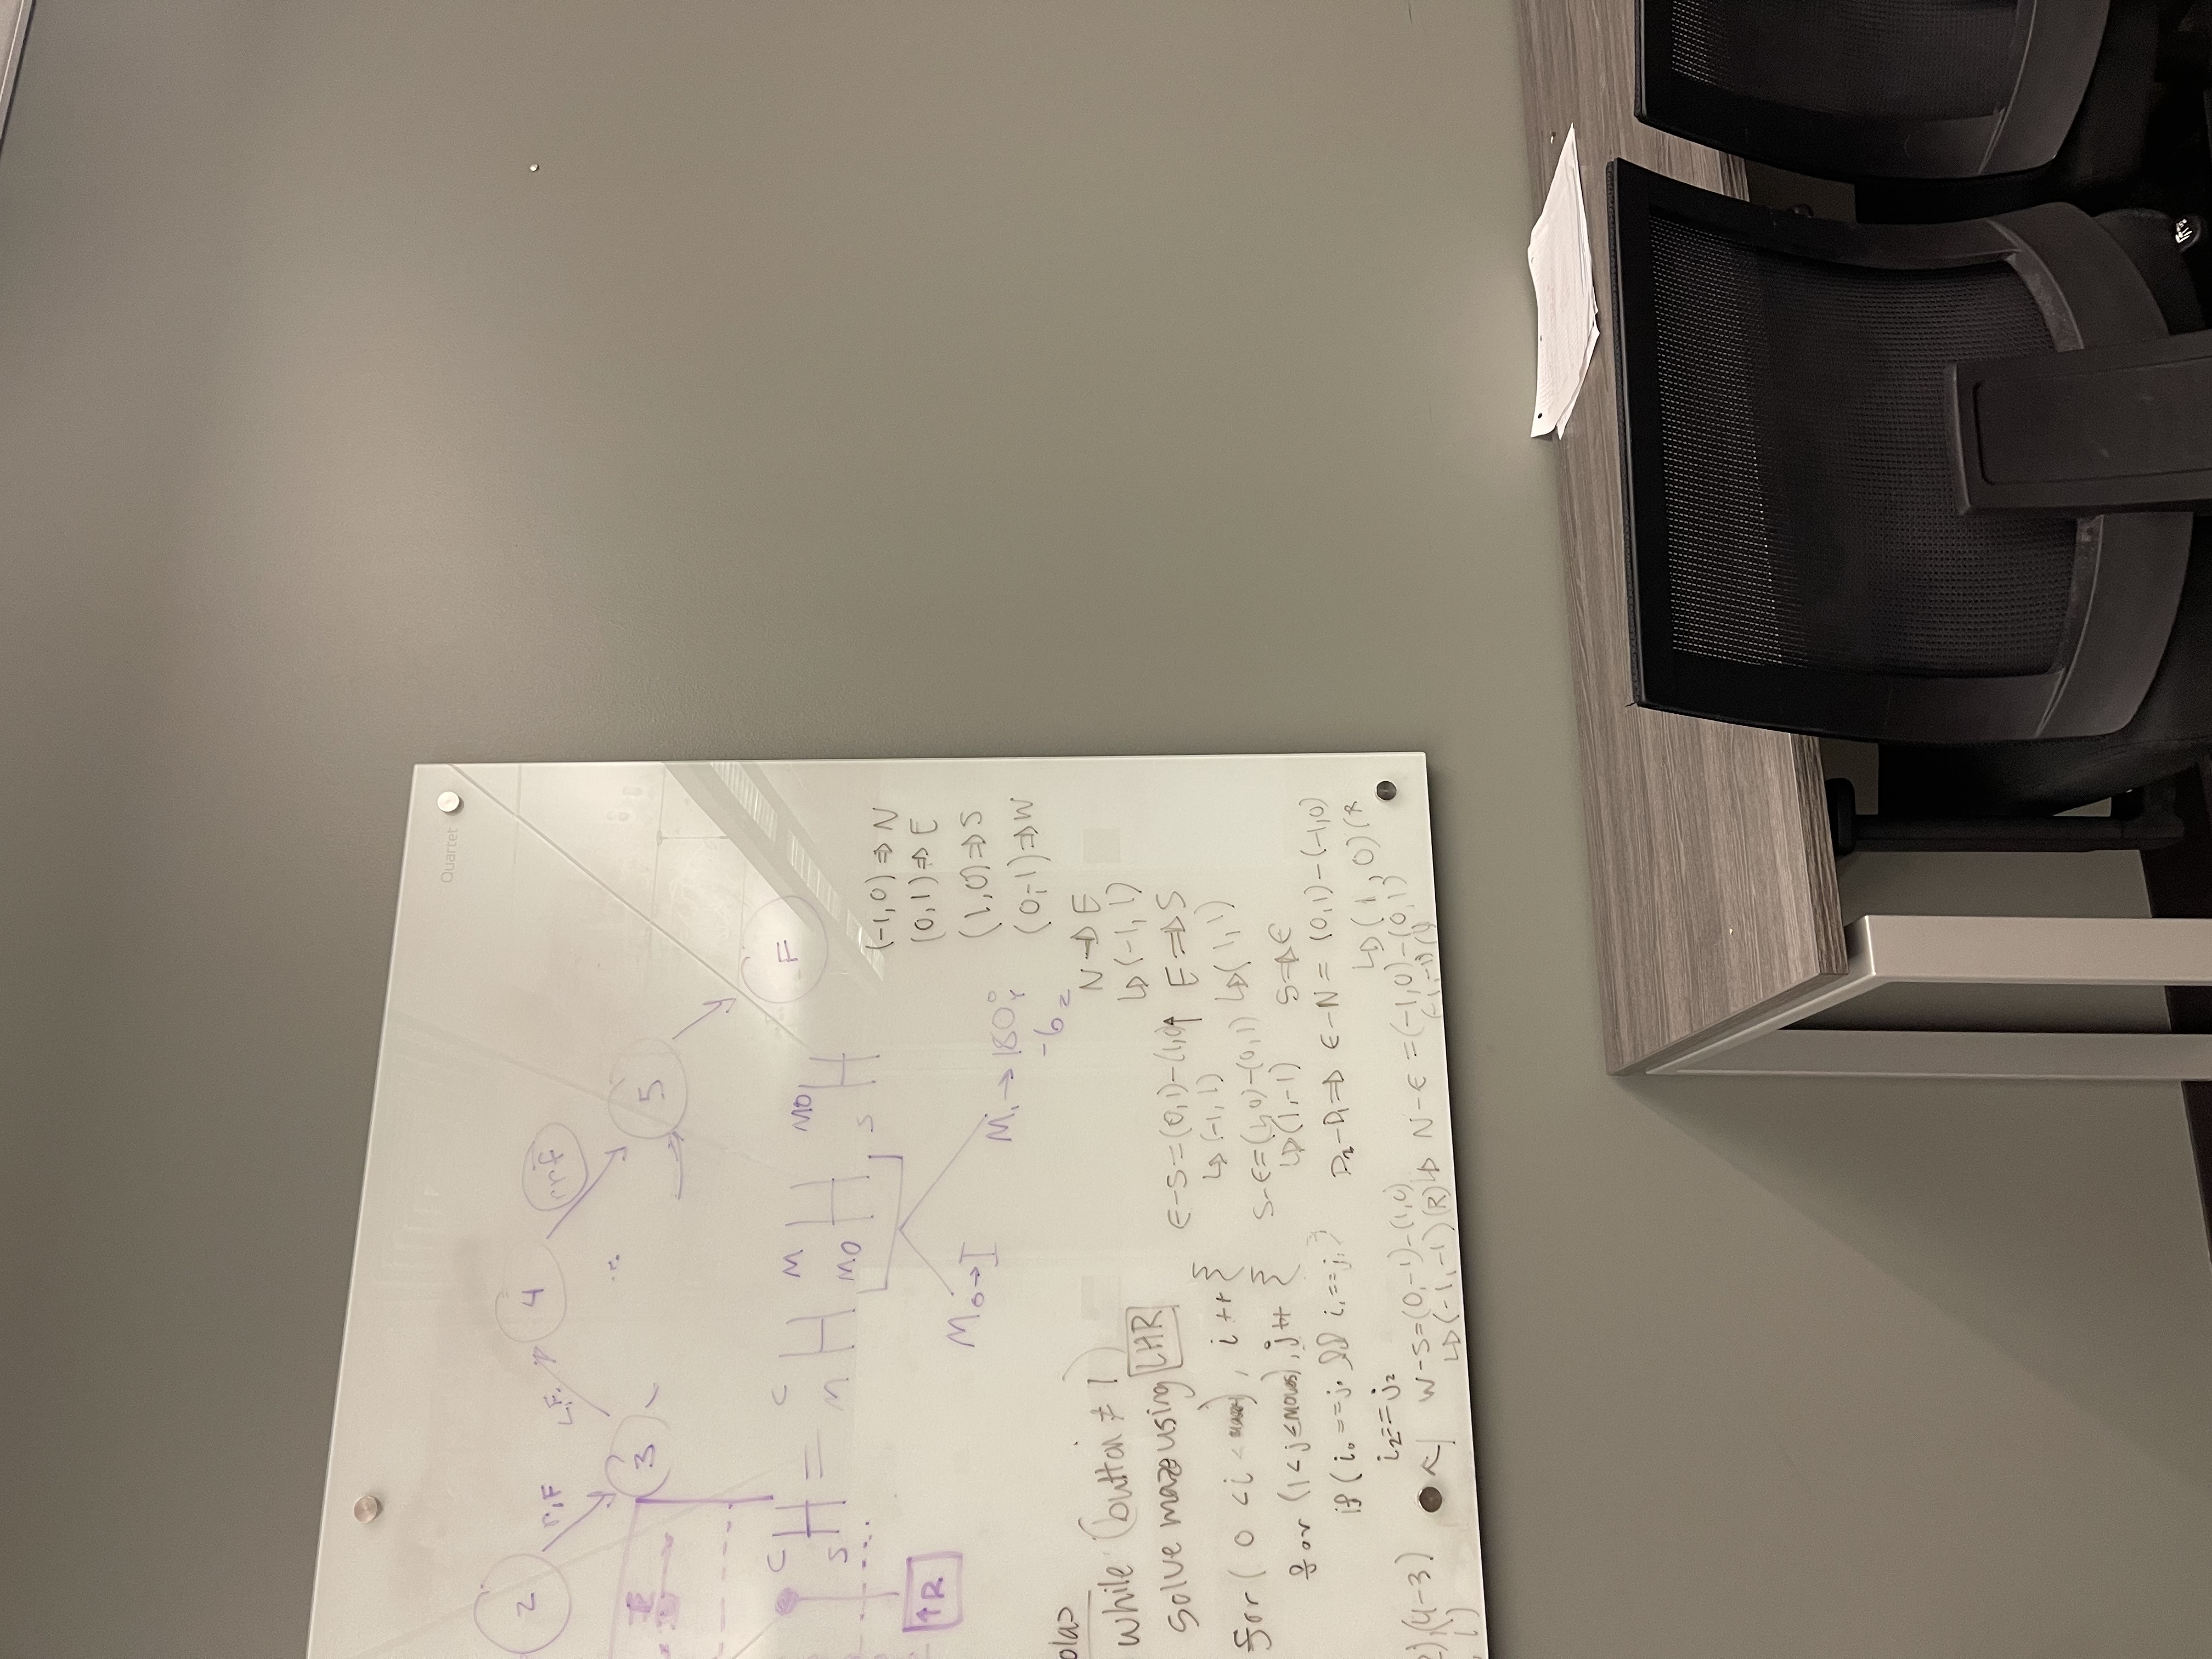 Quartet
2
4
rrF
r,F
L,F.
3
5
F
R
C
S H = C
M H M
MO H MO
S H
↑R
M₀→I
M₁→180°Y
-6z
(-1,0)⇒N
(0,1)⇒E
(1,0)⇒S
(0,-1)⇒W
N⇒E
↳(-1,1)
E⇒S
↳(1,1)
S⇒E
while (button ≠ 1)
Solve maze using LHR
for( 0 < i < ), i ++ {
for (1 < j ≤ moves), j++ {
if ( i₀ == j₀ && i₁ == j₁ }
i₂ == j₂
E-S=(0,1)-(1,0)
↳(-1,1)
S-E=(1,0)-(0,1)
↳(1,-1)
D₂-D₁⇒ E-N = (0,1)-(-1,0)
↳(1,0)(R
W-S=(0,-1)-(1,0)
↳(-1,-1)(R)
↳ N-E =(-1,0)-(0,1)
(-1,-1)(L)
),(4-3)
, 1)